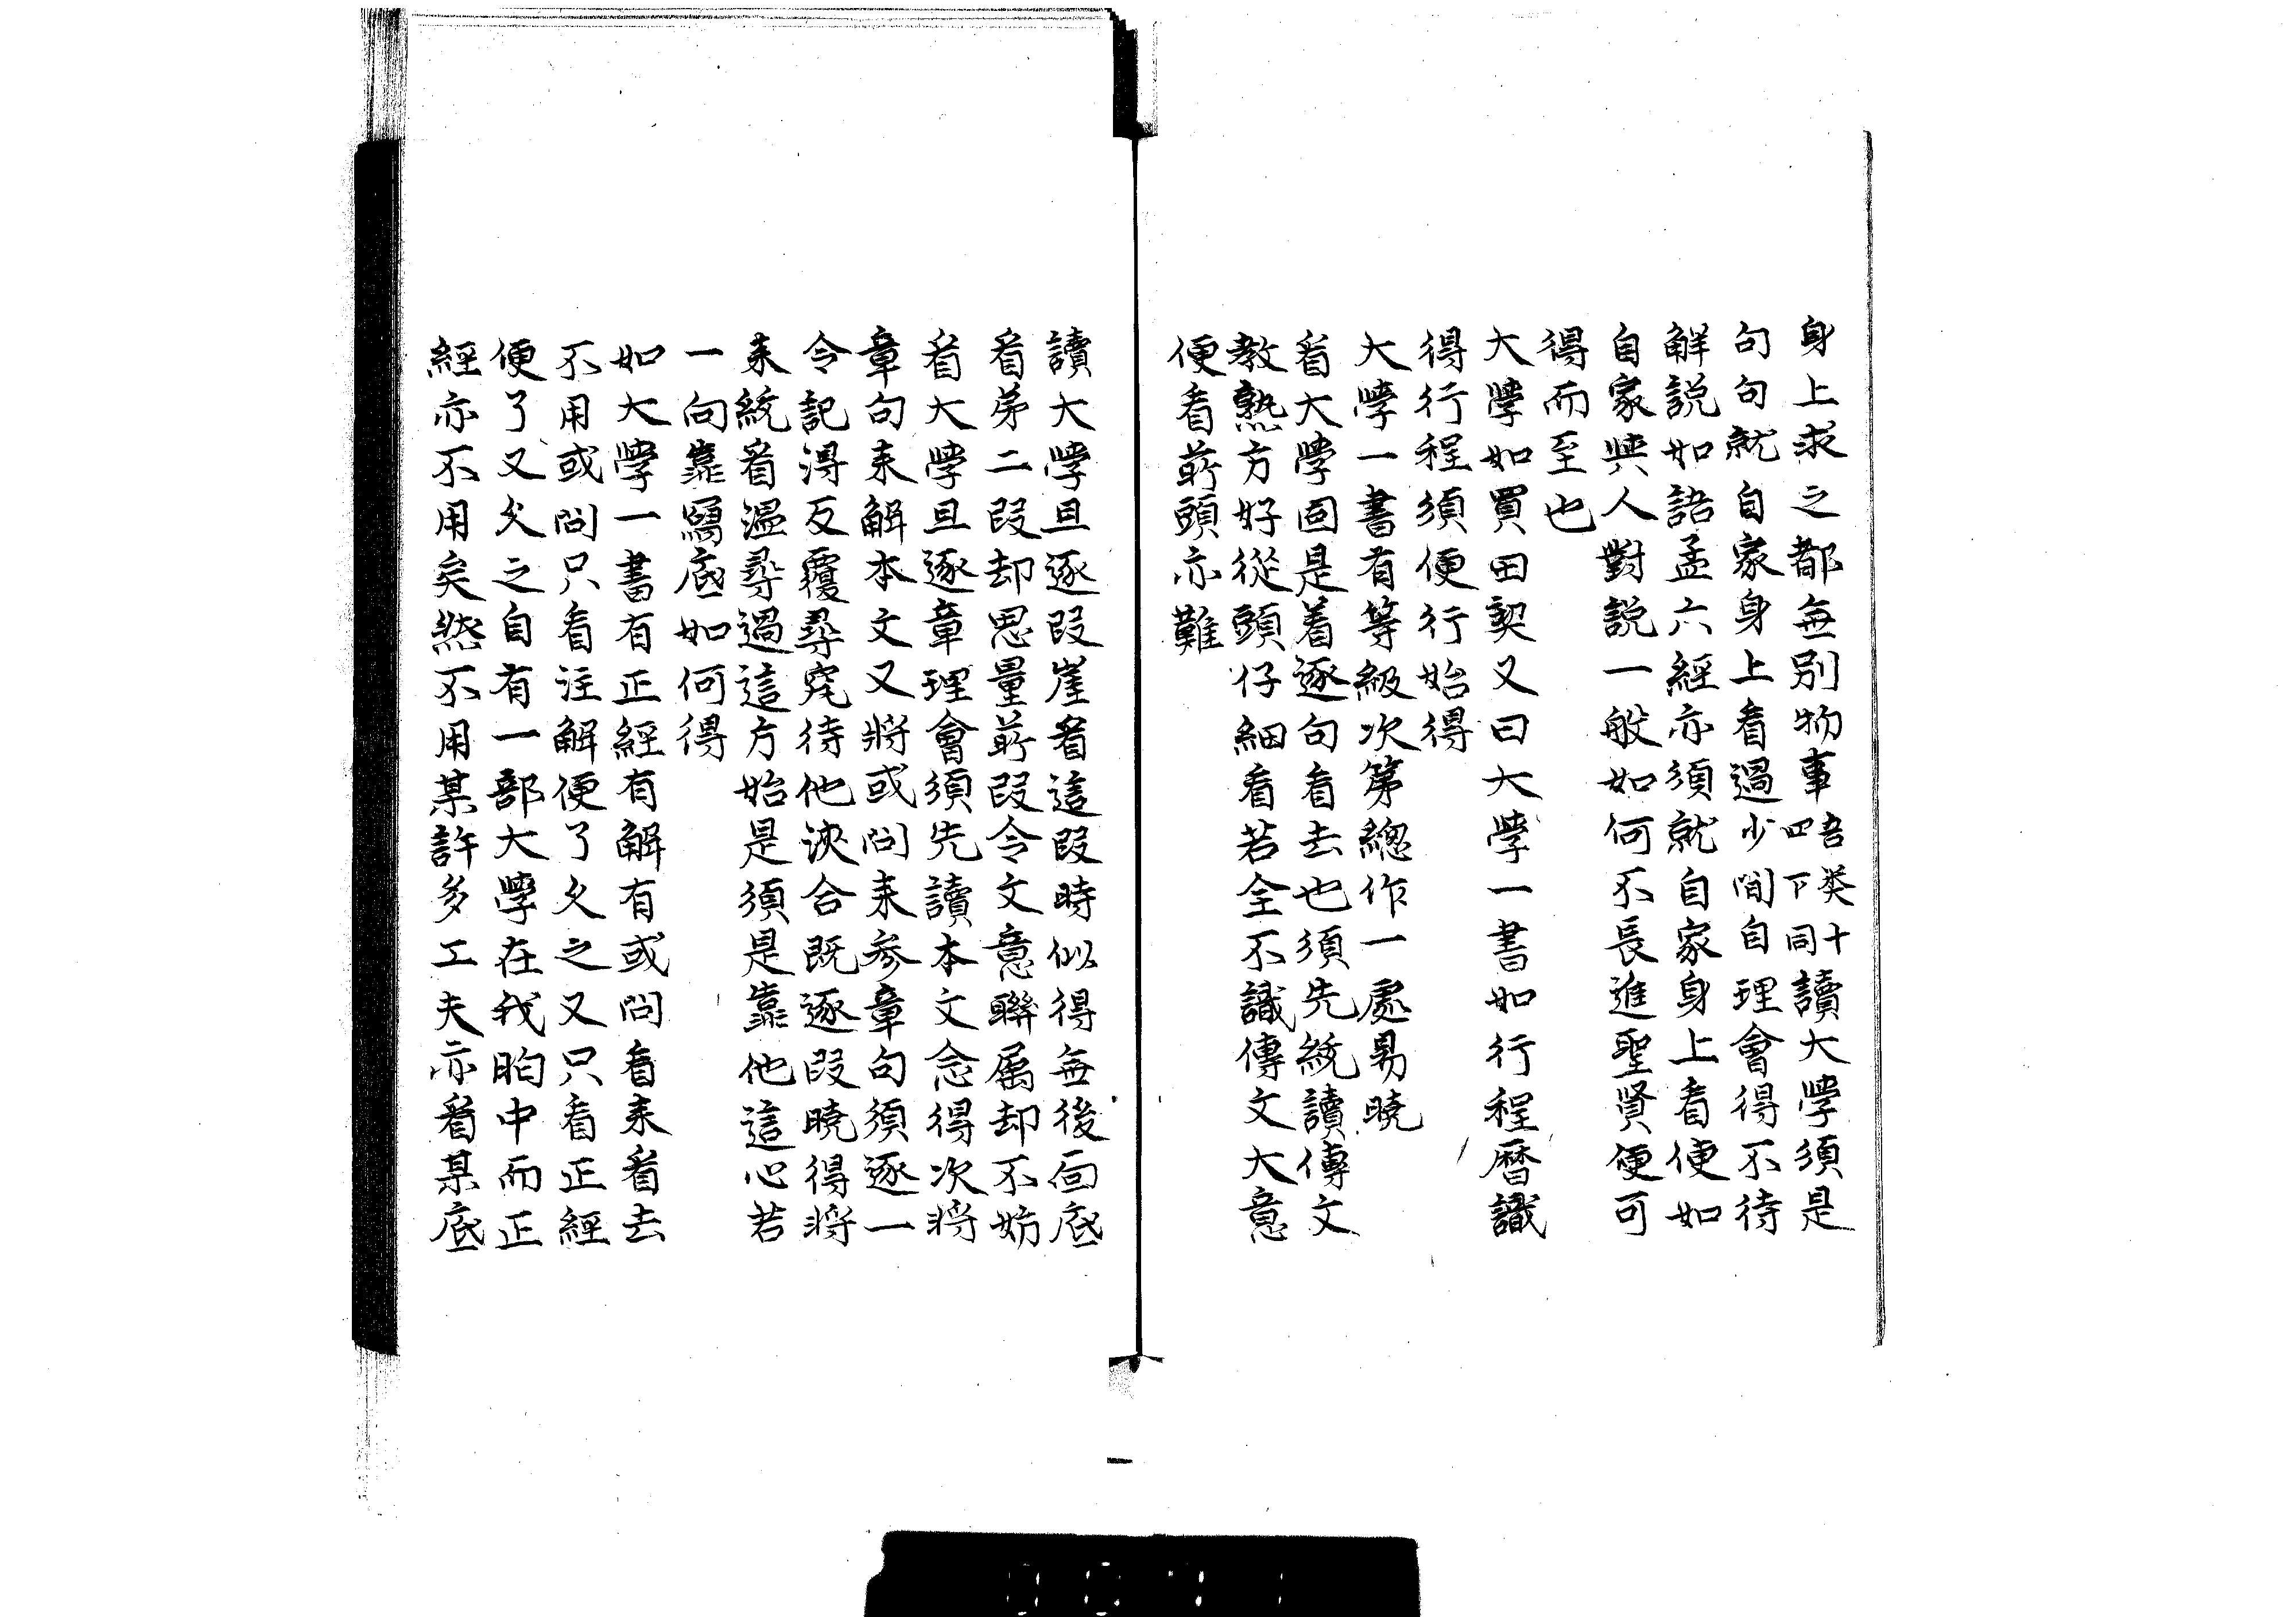 身上求之都無別物事語类十四下同讀大學須是
句句就自家身上看過少間自理會得不待
解説如語孟六經亦須就自家身上看便如
自家與人對説一般如何不長進聖賢便可
得而至也
大學如買田契又曰大學一書如行程暦識
得行程須便行始得
大學一書有等級次第總作一處易曉
看大學固是着逐句看去也須先統讀傳文
教熟方好從頭仔細看若全不識傳文大意
便看前頭亦難
讀大學且逐段崖看這段時似得無後面底
看第二段却思量前段令文意聯属却不妨
看大學且逐章理會須先讀本文念得次將
章句来解本文又將或問来参章句須逐一
令記得反覆尋究待他浹合既逐段曉得將
来統看温尋過這方始是須是靠他這心若
一向靠寫底如何得
如大學一書有正經有解有或問看来看去
不用或問只看注解便了久之又只看正經
便了又久之自有一部大學在我胸中而正
經亦不用矣然不用某許多工夫亦看某底